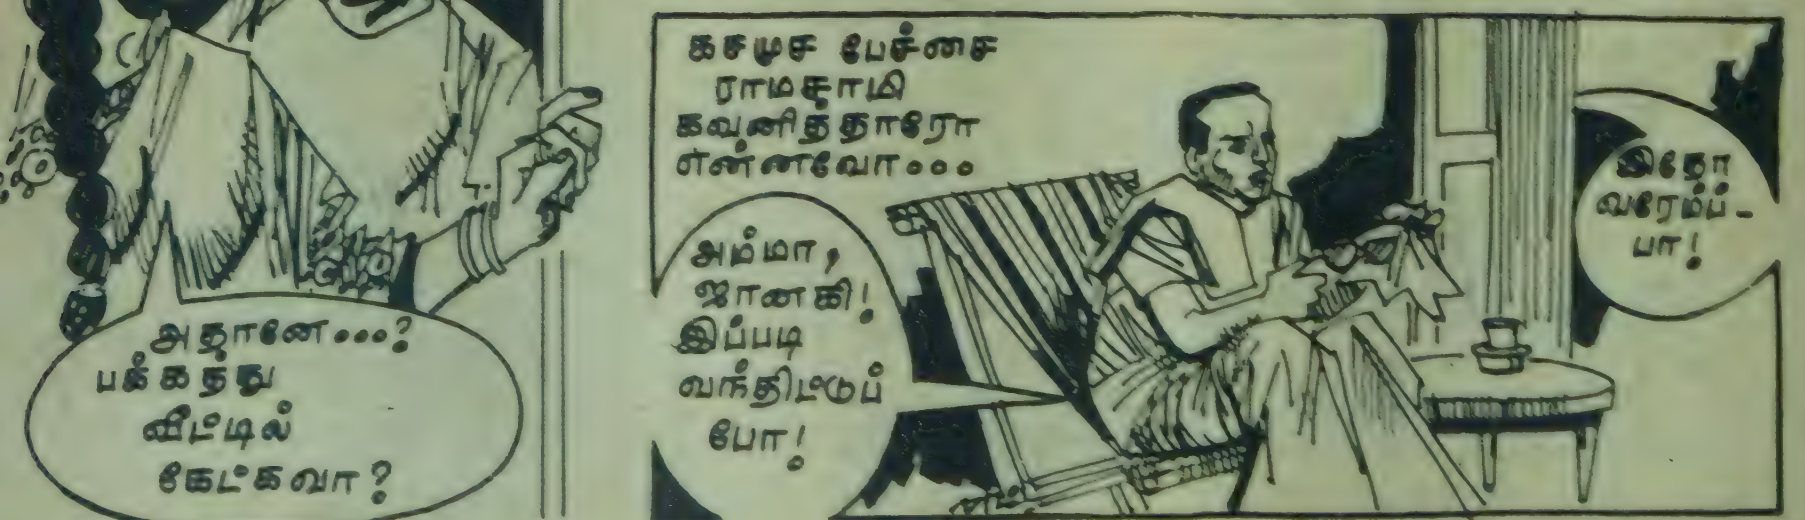 அதானே...?
பக்கத்து
வீட்டில்
கேட்கவா?
கசமுச பேச்சை
ராமசாமி
கவனித்தாரோ
என்னவோ...
அம்மா,
ஜானகி!
இப்படி
வந்திட்டுப்
போ!
இதோ
வரேம்ப்-
பா!